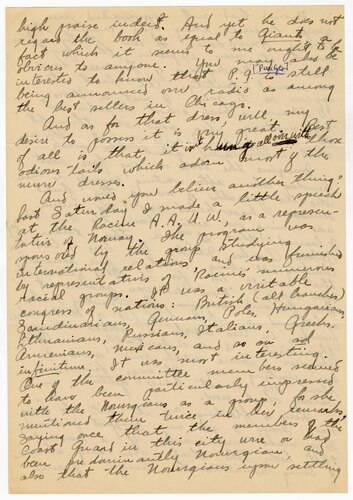 high praise indeed. And yet he does not
regard the book as equal to Giants, a
fact which it seems to me ought to be
obvious to anyone. You may also be
interested to know that P. G. is still
[Pureleje]
being announced over radio as among
the best sellers in Chicago.
And as for that dress, well, my
desire to possess it is very great. Best
of all is that it isn't hung all over with those
odious tails which adorn most of the
new dresses.
And would you believe another thing?
Last Saturday I made a little speech
at the Racine A. A. U. W., as a represen-
tative of Norway. The program was
sponsored by the group studying
international relations, and was furnished
by representatives of Racine's numerous
racial groups. It was a veritable
congress of nations: British (all branches)
Scandinavians, Germans, Poles, Hungarians,
Lithuanians, Russians, Italians, Greeks,
Armenians, Mexicans, and so on ad
infinitum. It was most interesting.
One of the committee members seemed
to have been particularly impressed
with the Norwegians as a group, for she
mentioned them twice in her remarks,
saying once that the members of the
Coast Guard in this city were or had
been predominantly Norwegian, and
also that the Norwegians upon settling